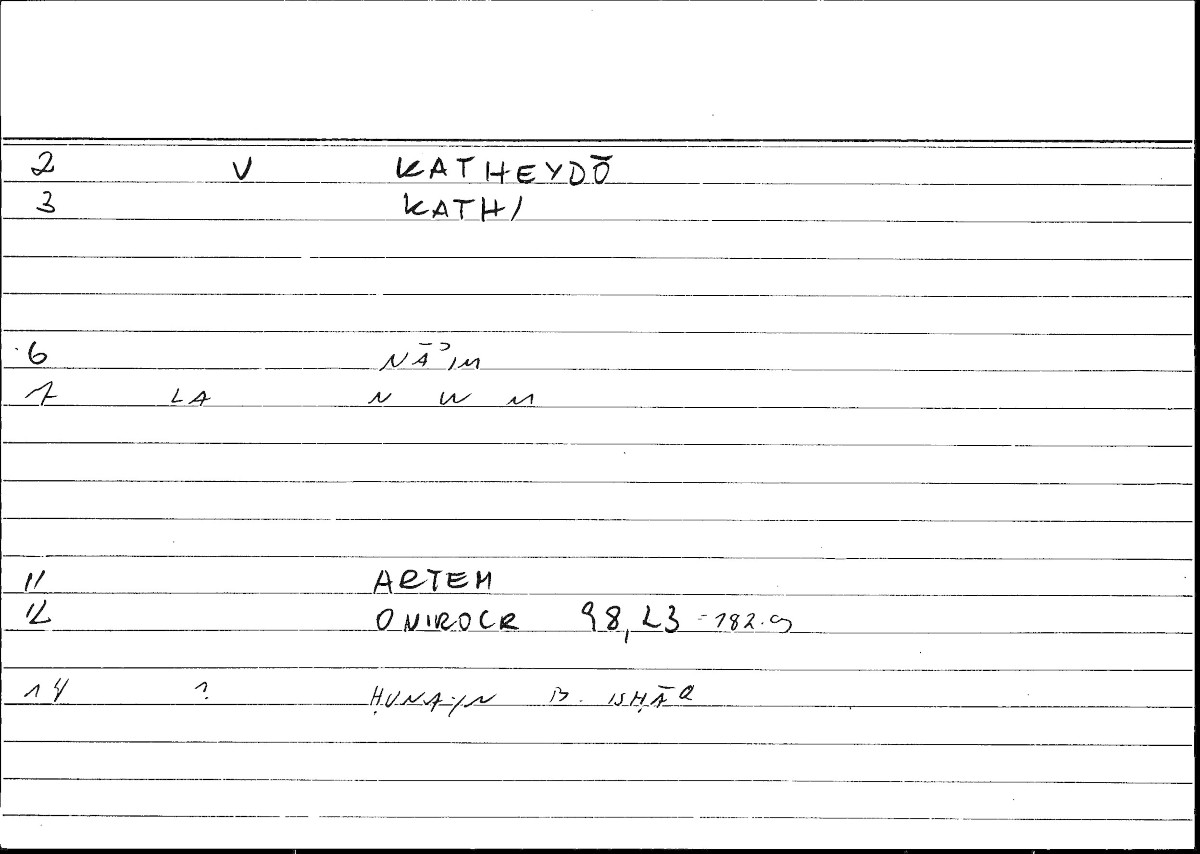 2 V KATHEYDŌ
3 KATHI
6 NĀʾIM
7 LA N W M
11 ARTEM
12 ONIROCR 98,23 = 182.9
14 ? ḤUNAYN B. ISḤĀQ